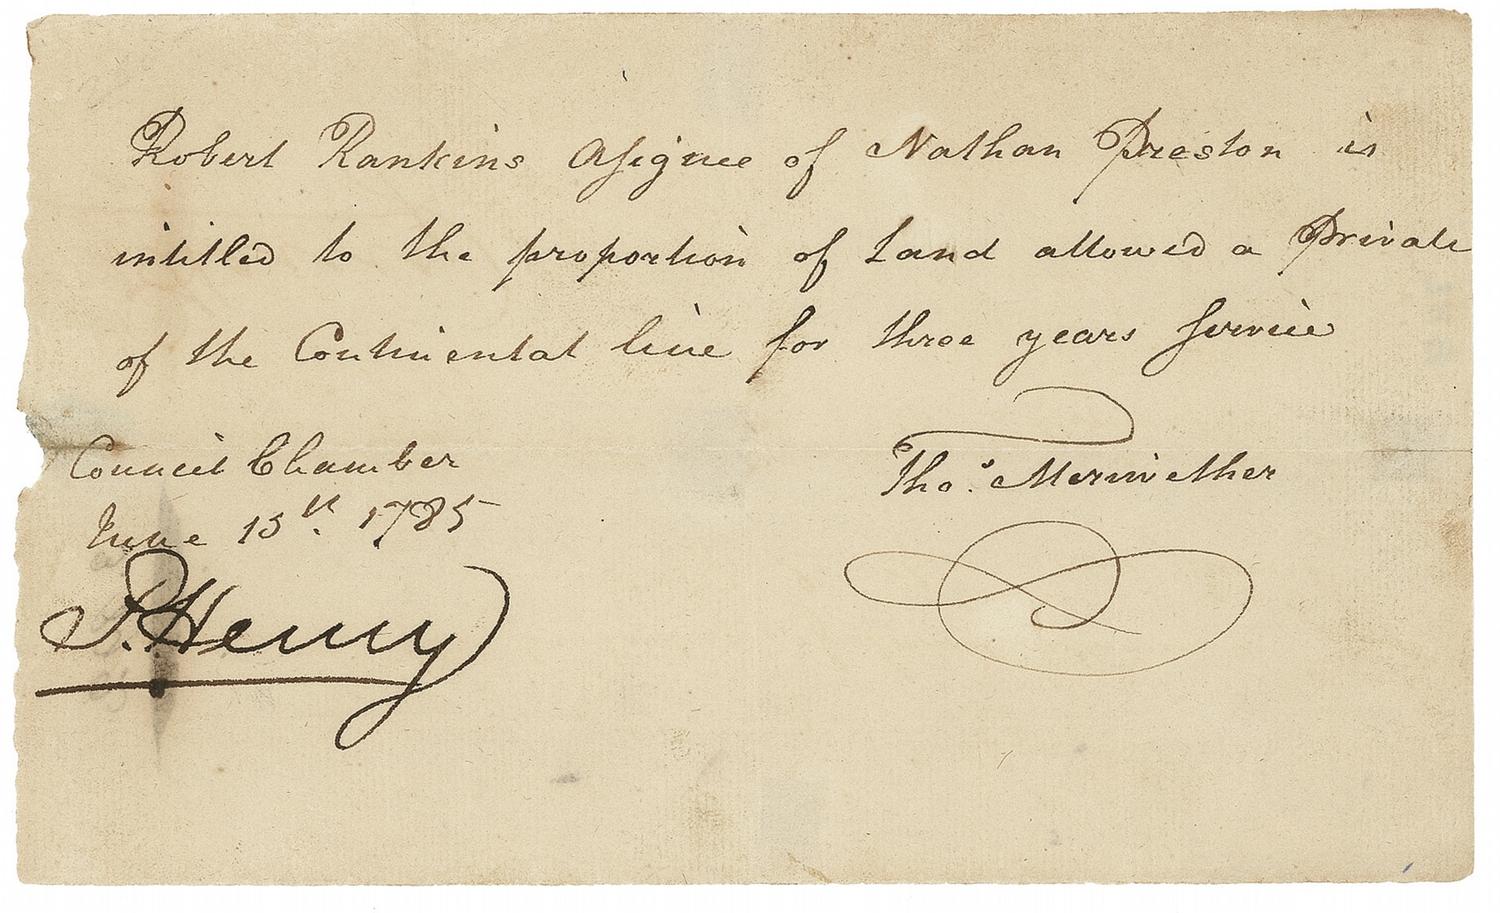 Robert Rankins Assignee of Nathan Preston is
intitled to the proportion of Land allowed a Private
of the Continental line for three years Service
Council Chamber
June 15th. 1785
Thos. Meriwether
P. Henry